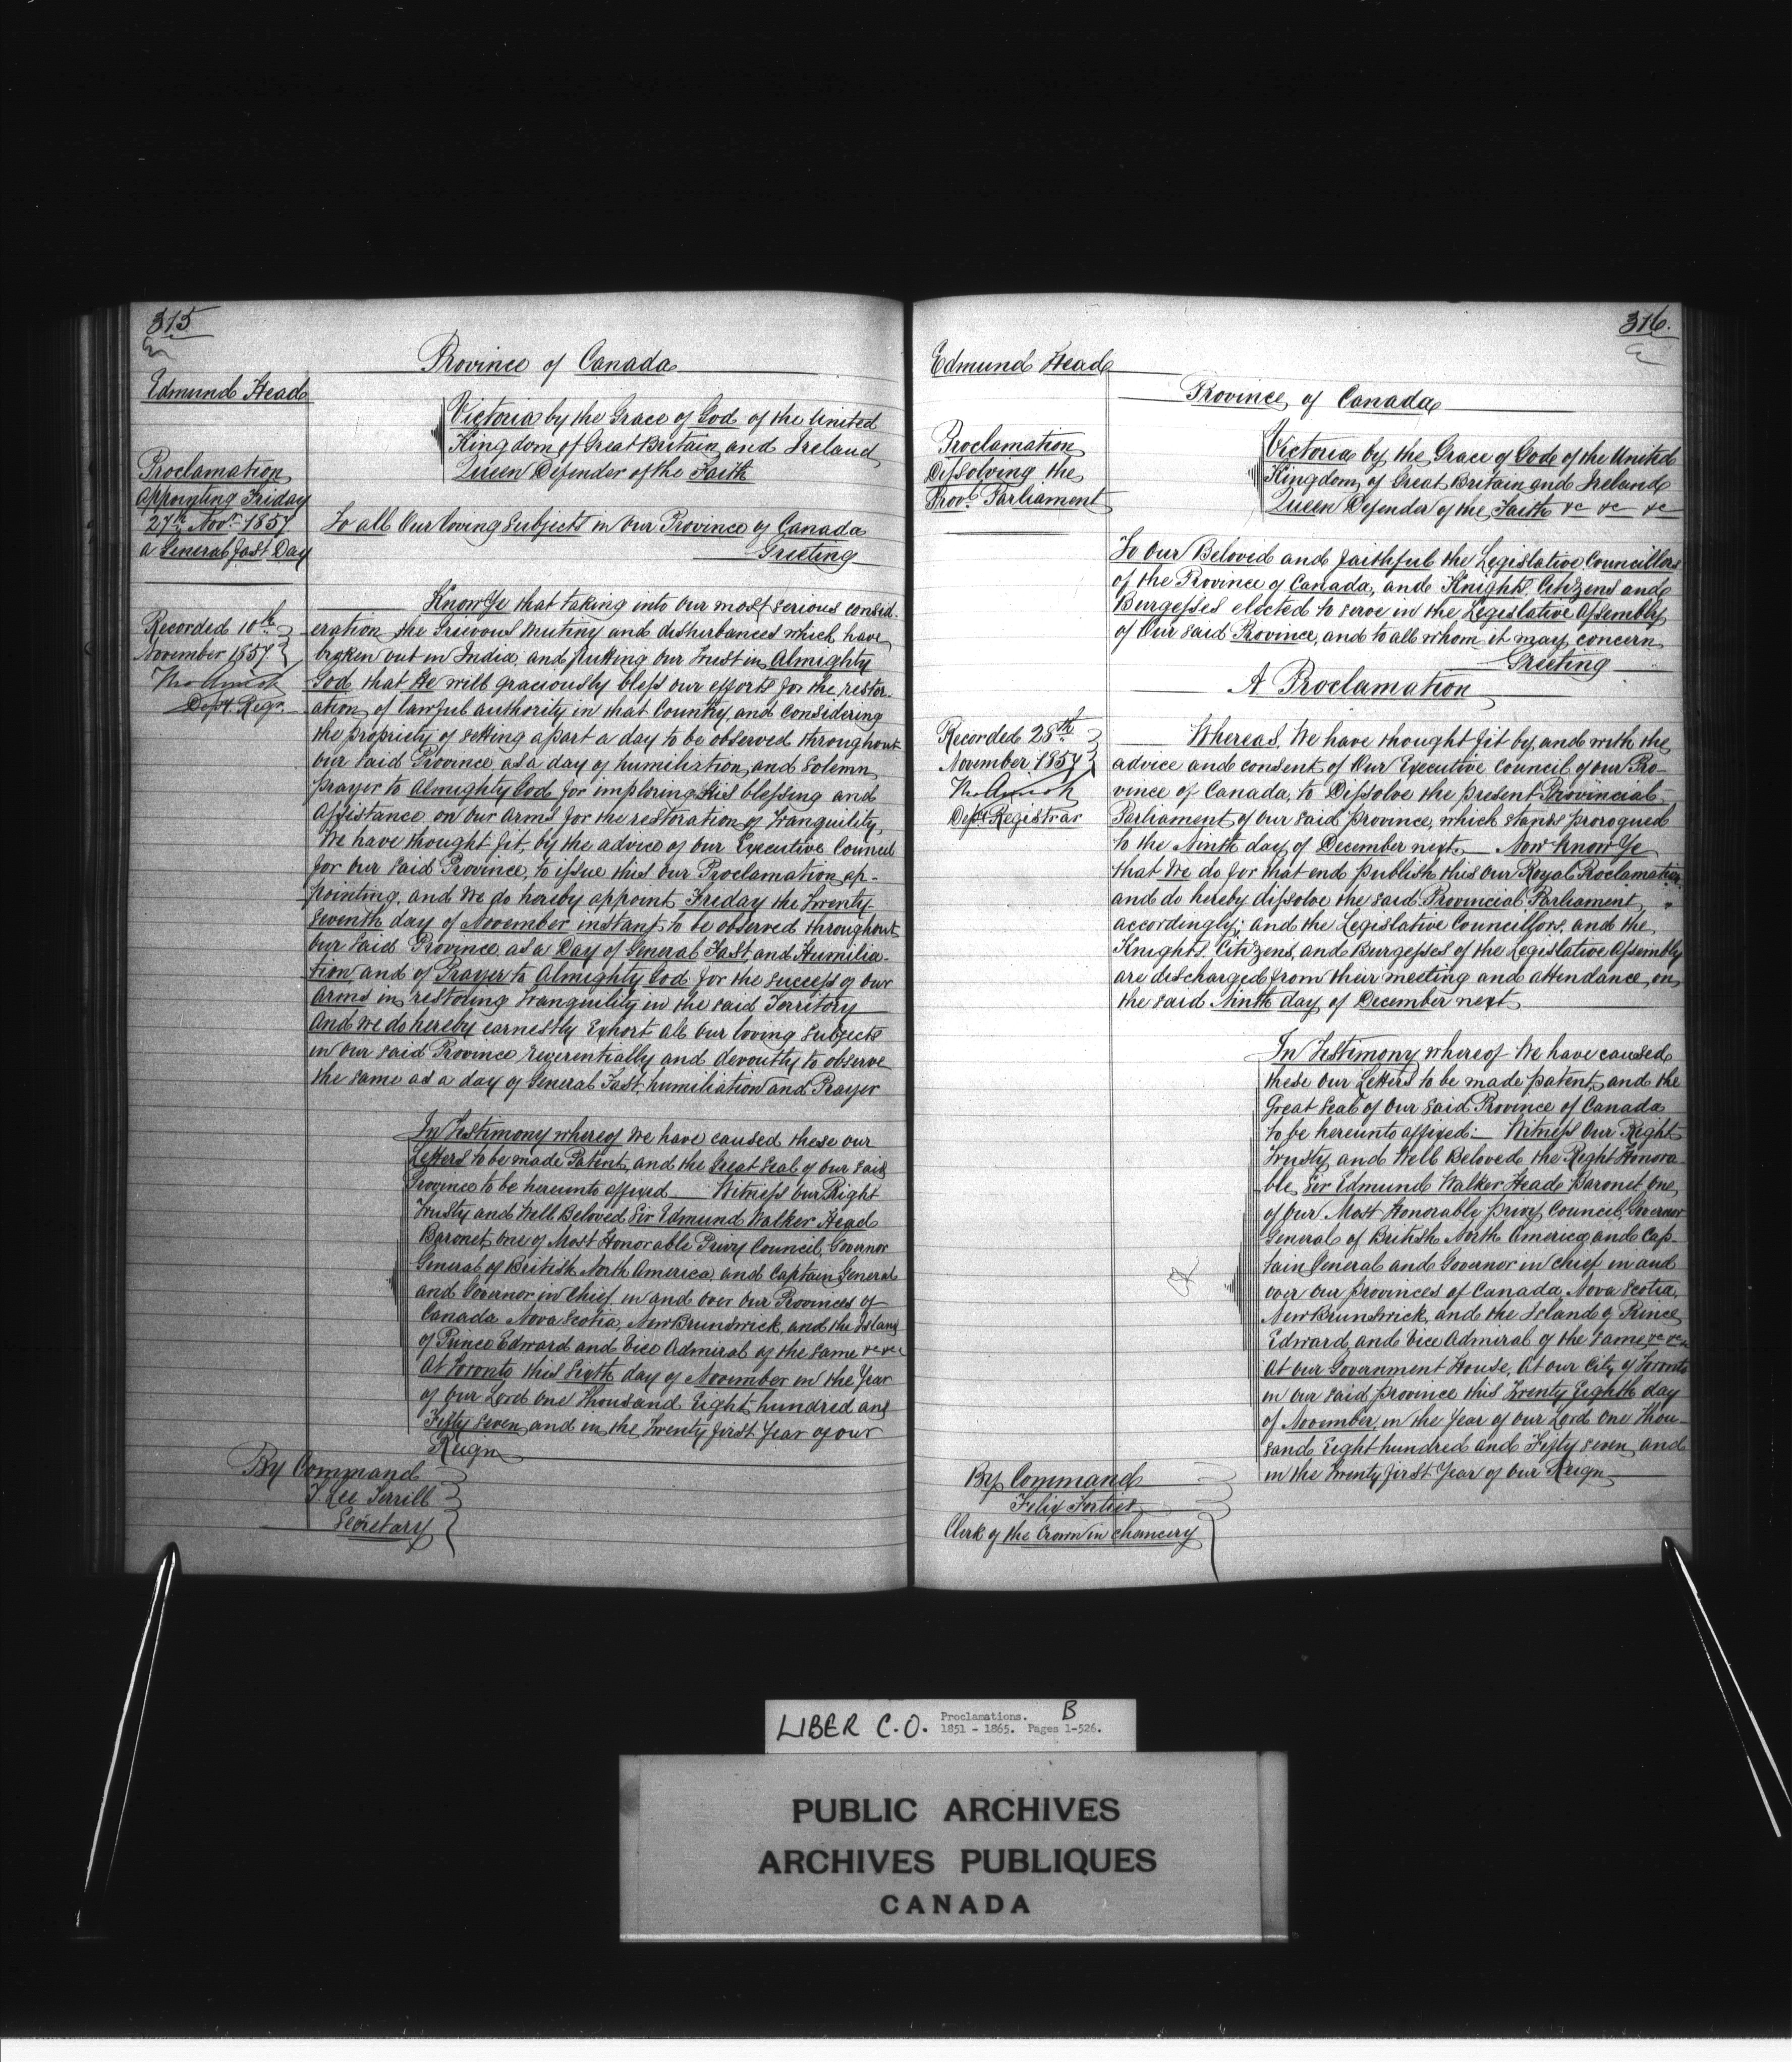 315
Province of Canada
Edmund Head
Victoria by the Grace of God of the United
Kingdom of Great Britain and Ireland
Queen Defender of the Faith
Proclamation
appointing Friday
27th Novr 1857
a General Fast Day
To all Our loving Subjects in Our Province of Canada
Greeting
Recorded 10th
November 1857
Dept. Regr.
Know Ye that taking into Our most serious consid-
eration the Grievous Mutiny and disturbances which have
broken out in India, and putting Our trust in Almighty
God that He will graciously bless our efforts for the restor-
ation of lawful authority in that Country, and considering
the propriety of setting apart a day to be observed throughout
our said Province, as a day of humiliation and solemn
prayer to Almighty God for imploring His blessing and
Assistance on our Arms for the restoration of tranquility,
We have thought fit, by the advice of our Executive Council
for our said Province, to issue this Our Proclamation ap-
pointing, and We do hereby appoint Friday the Twenty
seventh day of November instant, to be observed throughout
Our said Province as a Day of General Fast, and Humilia-
tion, and of Prayer to Almighty God for the success of our
Arms in restoring tranquility in the said Territory
And we do hereby earnestly Exhort all our loving subjects
in our said Province reverentially and devoutly to observe
the same as a day of General Fast, humiliation and Prayer
In Testimony whereof We have caused these our
Letters to be made Patent, and the Great Seal of our said
Province to be hereunto affixed Witness Our Right
Trusty and Well Beloved Sir Edmund Walker Head
Baronet, One of Most Honorable Privy Council, Governor
General of British North America, and Captain General
and Governor in Chief in and over Our Provinces of
Canada Nova Scotia, New Brunswick, and the Island
of Prince Edward and Vice Admiral of the same &c &c
At Toronto this Sixth day of November in the Year
of Our Lord One thousand Eight hundred and
Fifty seven and in the Twenty first Year of our
Reign
By Command
T. Lee Terrill
Secretary
316.
Edmund Head
Province of Canada
Proclamation
Dissolving the
Provl. Parliament
Victoria by the Grace of God of the United
Kingdom of Great Britain and Ireland
Queen Defender of the Faith &c &c &c
To Our Beloved and faithful the Legislative Councillors
of the Province of Canada, and Knights Citizens and
Burgesses elected to serve in the Legislative Assembly
of Our said Province, and to all whom it may concern
Greeting
A Proclamation
Recorded 28th
November 1857
Dept. Registrar
Whereas, We have thought fit by, and with the
advice and consent of Our Executive Council of our Pro-
vince of Canada, to Dissolve the present Provincial
Parliament of our said Province, which stands prorogued
to the Ninth day of December next. Now Know Ye
that We do for that end publish this our Royal Proclamation
and do hereby dissolve the said Provincial Parliament
accordingly; and the Legislative Councillors, and the
Knights Citizens, and Burgesses of the Legislative Assembly
are discharged from their meeting and attendance, on
the said Ninth day of December next
In Testimony whereof We have caused
these our Letters to be made patent, and the
Great Seal of Our said Province of Canada
to be hereunto affixed: Witness Our Right
Trusty and Well Beloved the Right Honora-
ble, Sir Edmund Walker Head Baronet, One
of Our Most Honorable Privy Council, Governor
General of British North America, and Cap-
tain General and Governor in Chief in and
over our Provinces of Canada, Nova Scotia,
New Brunswick, and the Island of Prince
Edward and Vice Admiral of the same &c &c
At our Government House, At our City of Toronto
in our said province this Twenty Eighth day
of November, in the Year of our Lord One Thou-
sand Eight hundred and Fifty seven, and
in the Twenty first Year of Our Reign
By Command
Felix Fortier
Clerk of the Crown in Chancery
LIBER C.O. Proclamations. B
1851 - 1865. Pages 1-526.
PUBLIC ARCHIVES
ARCHIVES PUBLIQUES
CANADA